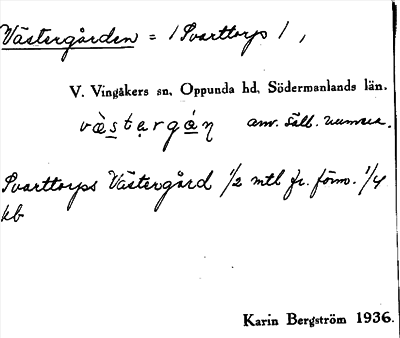 Västergården = / Svarttorps / ,
V. Vingåkers sn, Oppunda hd, Södermanlands län.
væ̀stergá̱ɳ anv. sällb. numera.
Svarttorps Västergård 1/2 mtl fr. förm. 1/4
kb
Karin Bergström 1936.